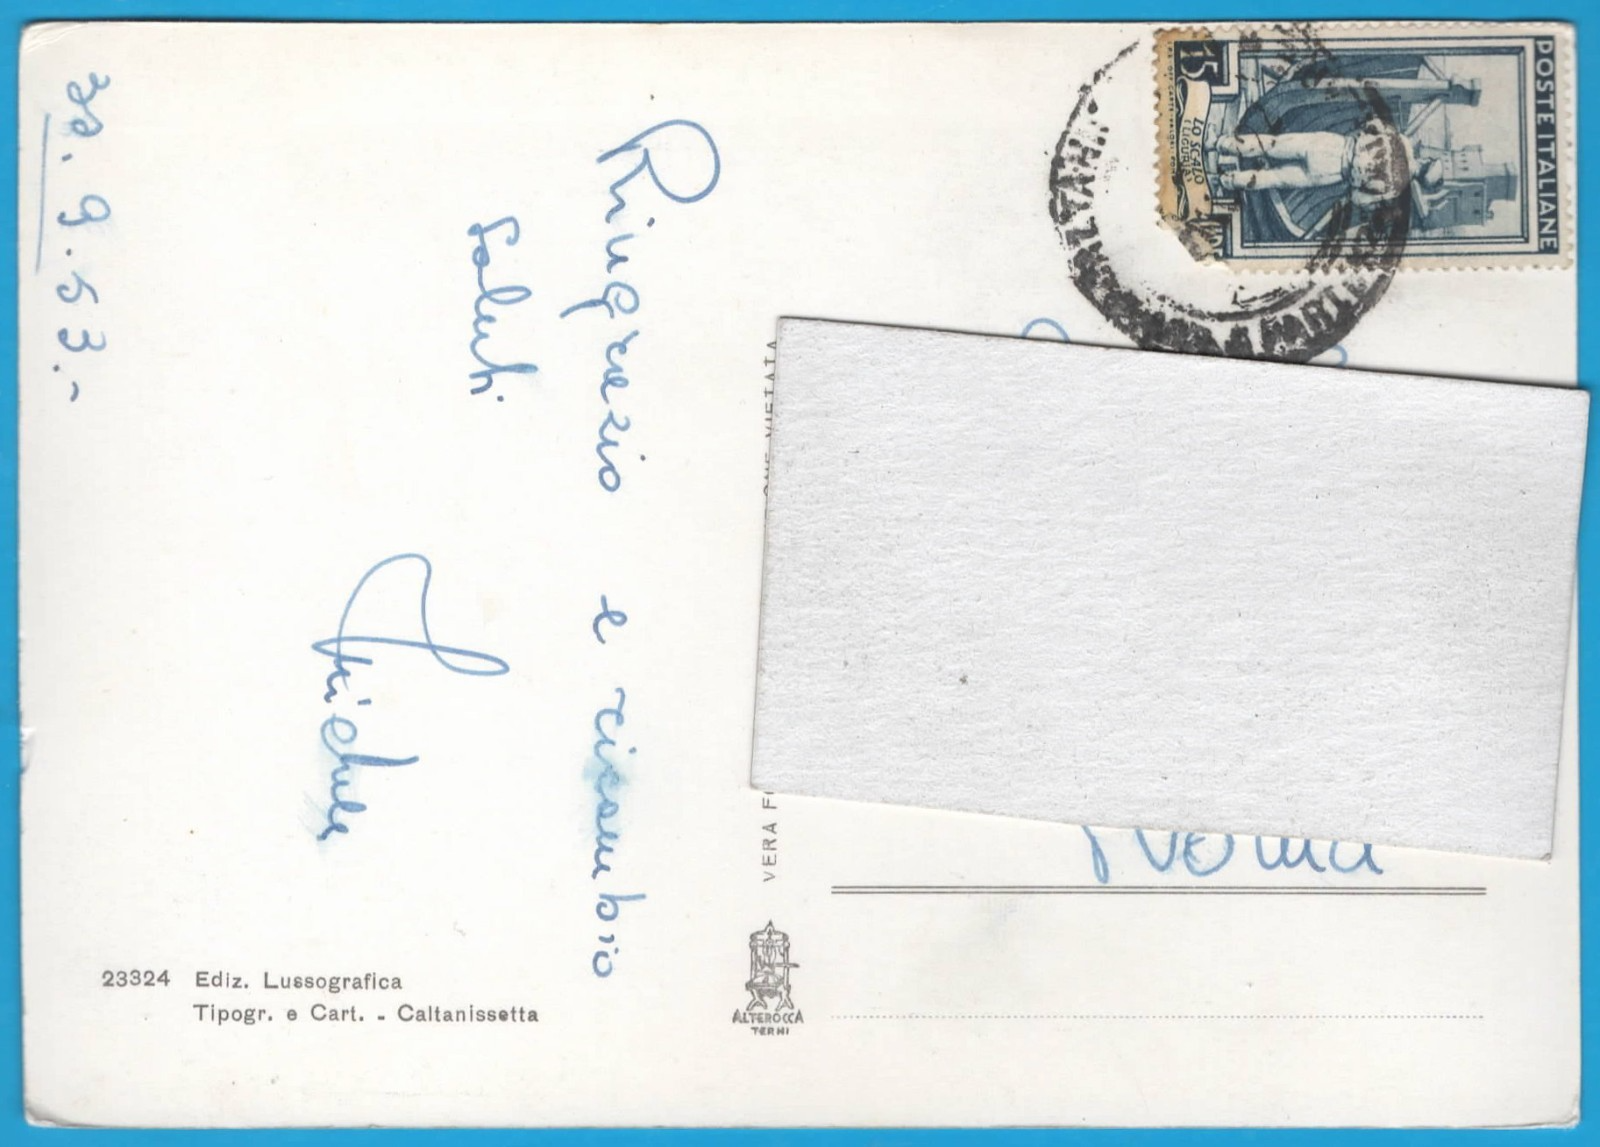 30.9.53.-
Ringrazio e ricambio
Saluti
Michele
23324 Ediz. Lussografica
Tipogr. e Cart. - Caltanissetta
VERA FO
IONE VIETATA
ALTEROCCA
TERNI
POSTE ITALIANE
15
LO SCALO
(LIGURIA)
Roma